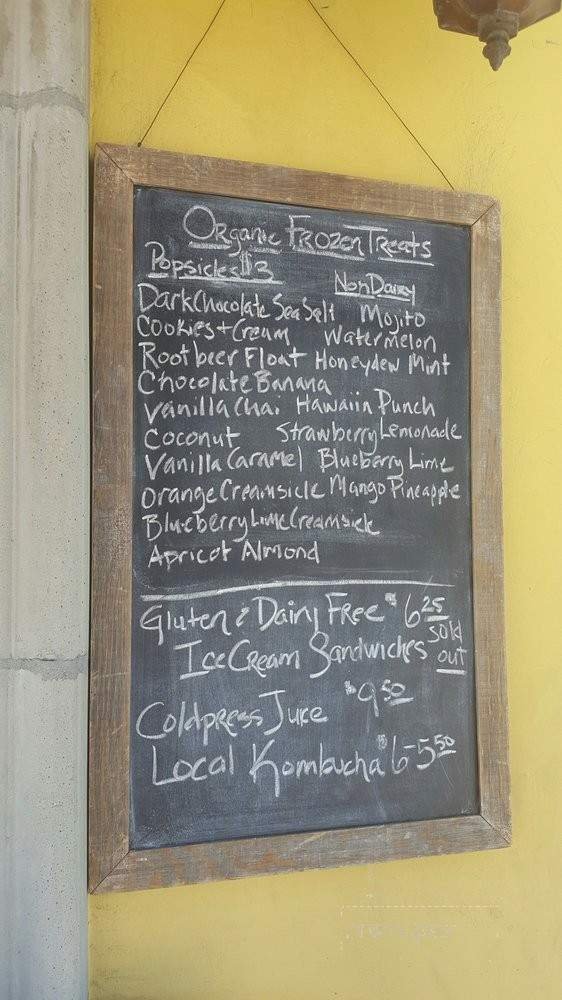 Organic Frozen Treats
Popsicles $3 Non Dairy
Dark Chocolate Sea Salt Mojito
Cookies + Cream Watermelon
Root beer Float Honeydew Mint
Chocolate Banana
Vanilla Chai Hawaiin Punch
Coconut Strawberry Lemonade
Vanilla Caramel Blueberry Lime
Orange Creamsicle Mango Pineapple
Blueberry Lime Creamsicle
Apricot Almond
Gluten & Dairy Free $6 25
Ice Cream Sandwiches sold out
Coldpress Juce $9 50
Local Kombucha $6-5 50